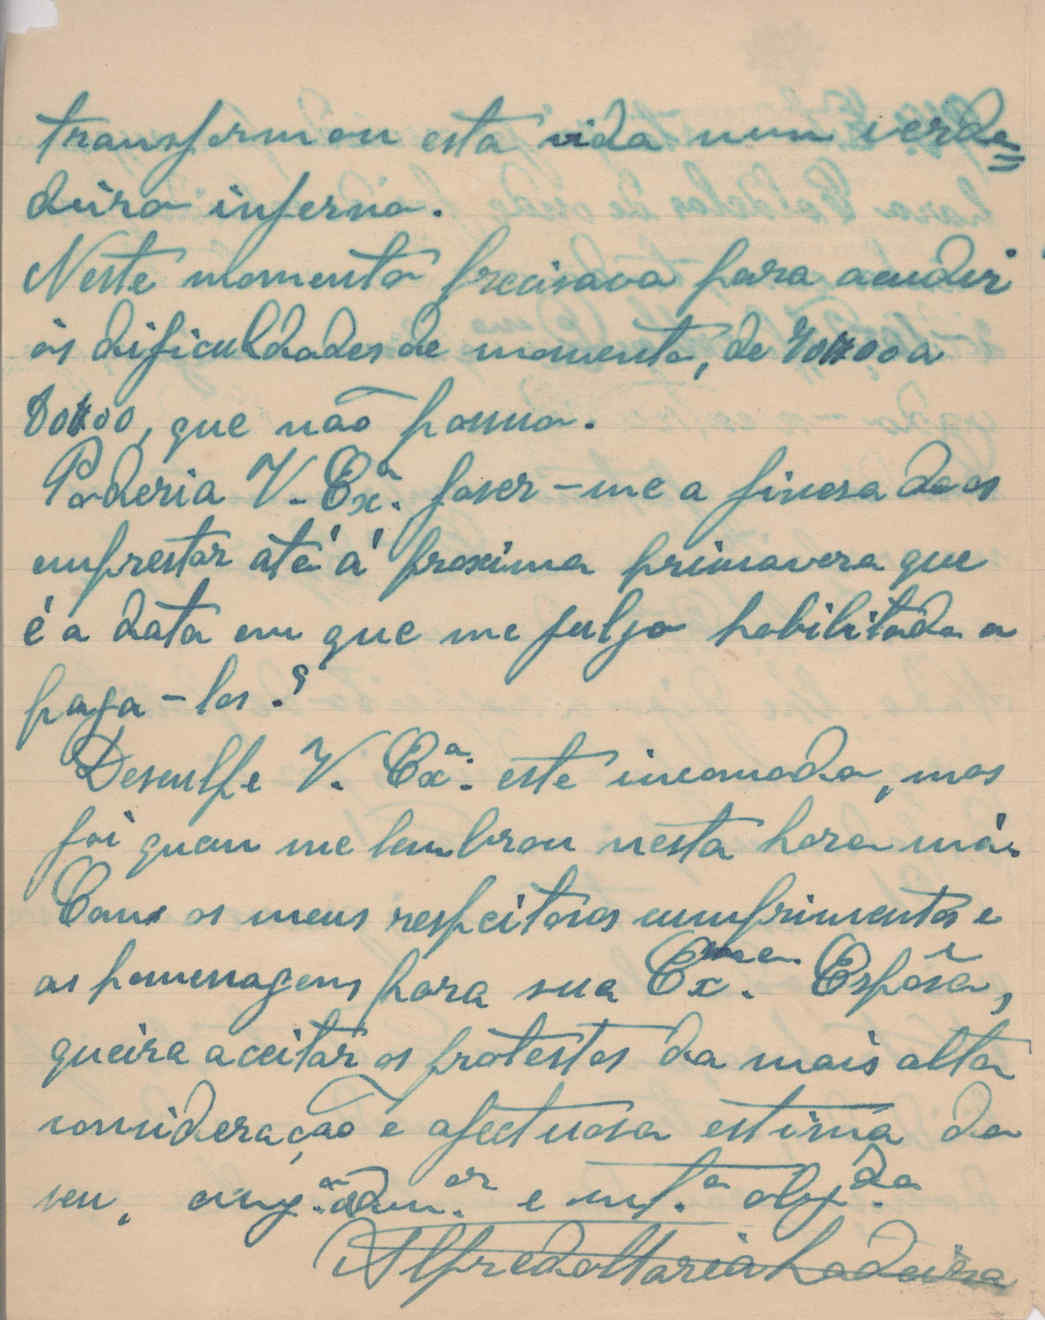 transformou esta vida num verda=
deiro inferno.
Neste momento precisava para acudir
ás dificuldades de momento, de 70$00 a
80$00, que não possuo.
Poderia V. Exª. faser-me a finesa de os
emprestar até á proxima primavera que
é a data em que me julgo habilitado a
paga-los?
Desculpe V. Exª. este incomodo, mas
foi quem me lembrou nesta hora má.
Com os meus respeitosos cumprimentos e
as homenagens para sua Exma. Espôsa,
queira aceitar os protestos da mais alta
consideração e afectuosa estima do
seu, amgº. admor. e mtº obgdo.
Alfredo Maria Ladeira